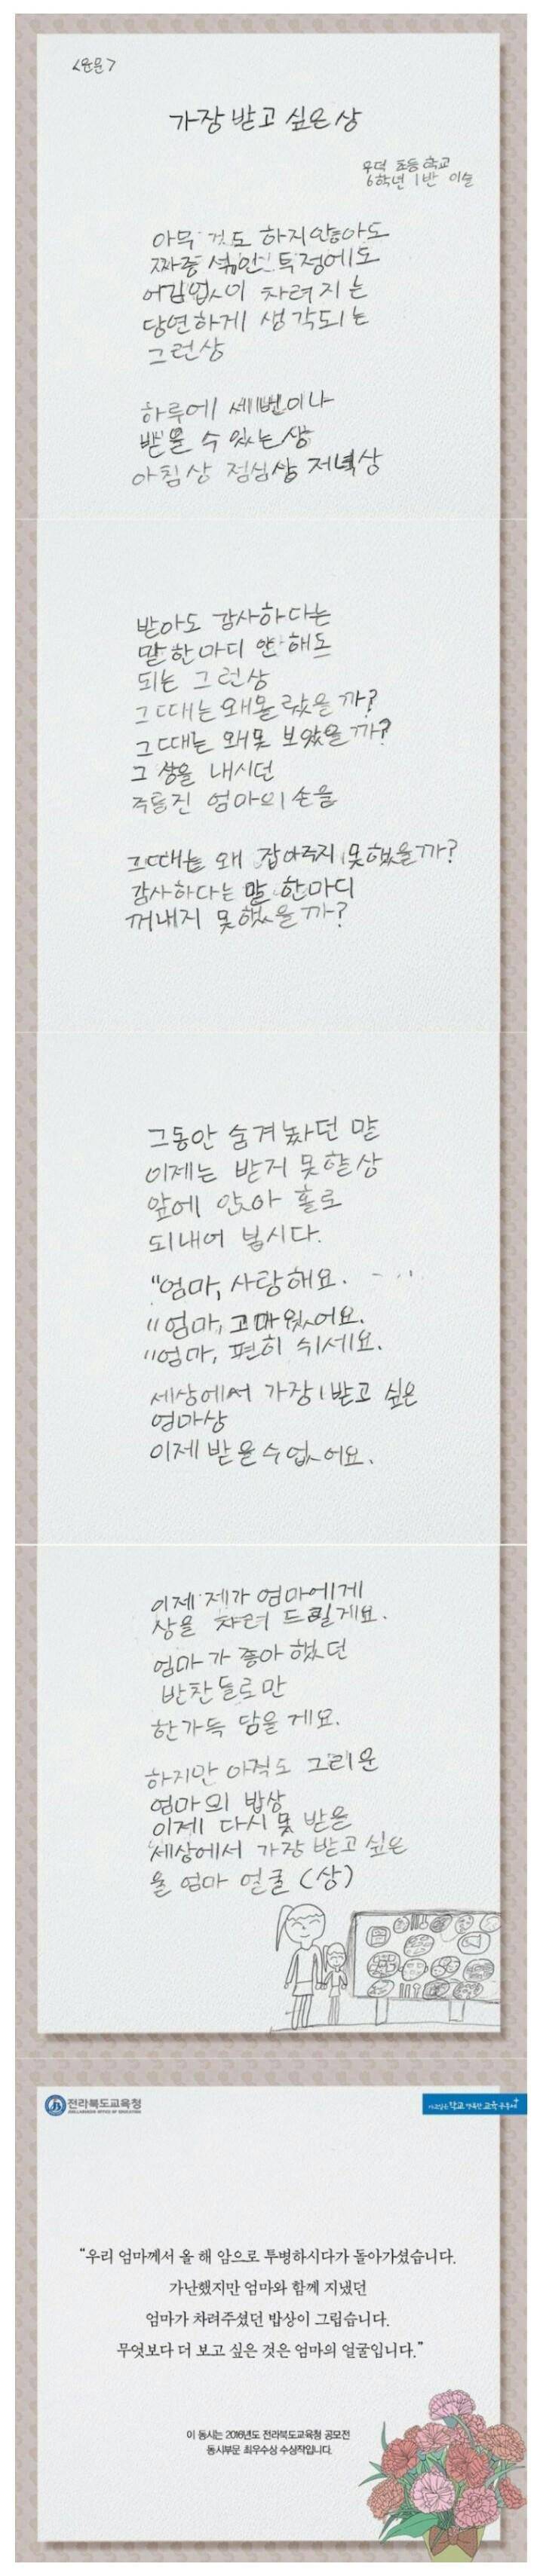 <운문>
가장 받고 싶은 상
우덕 초등학교
6학년 1반 이슬
아무 것도 하지않아도
짜증 섞인 투정에도
어김없이 차려지는
당연하게 생각되는
그런상
하루에 세번이나
받을 수 있는상
아침상 점심상 저녁상
받아도 감사하다는
말 한마디 안 해도
되는 그런상
그때는 왜몰랐을까?
그때는 왜못 보았을까?
그 상을 내시던
주름진 엄마의 손을
그때는 왜 잡아주지 못했을까?
감사하다는 말 한마디
꺼내지 못했을까?
그동안 숨겨놨던 말
이제는 받지 못할상
앞에 앉아 홀로
되내어 봅시다.
"엄마, 사랑해요.
"엄마, 고마웠어요.
"엄마, 편히 쉬세요.
세상에서 가장 받고 싶은
엄마상
이제받을수없어요.
이제 제가 엄마에게
상을 차려 드릴게요.
엄마가 좋아했던
반찬들로만
한가득 담을게요.
하지만 아직도 그리운
엄마의 밥상
이제 다시 못 받을
세상에서 가장 받고싶은
울 엄마 얼굴 (상)
전라북도교육청
JEOLLABUKDO OFFICE OF EDUCATION
가고싶은 학교 행복한 교육공동체
"우리 엄마께서 올 해 암으로 투병하시다가 돌아가셨습니다.
가난했지만 엄마와 함께 지냈던
엄마가 차려주셨던 밥상이 그립습니다.
무엇보다 더 보고 싶은 것은 엄마의 얼굴입니다."
이 동시는 2016년도 전라북도교육청 공모전
동시부문 최우수상 수상작입니다.